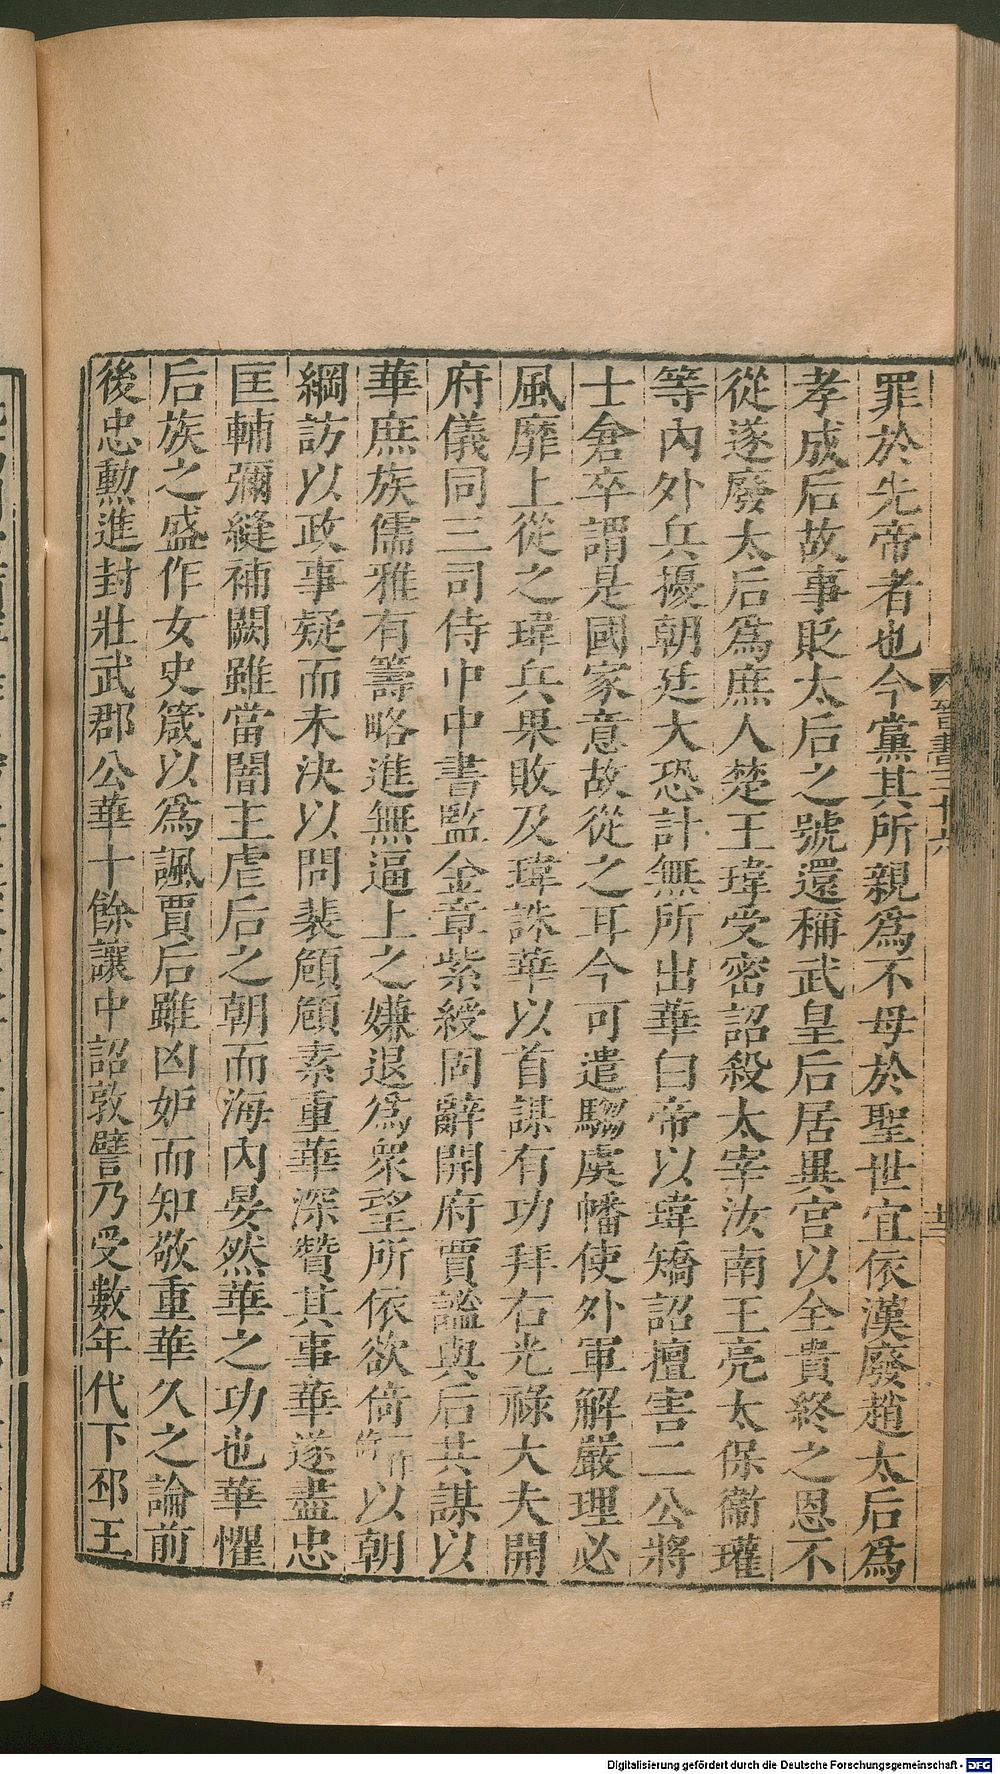 罪於先帝者也今黨其所親爲不母於聖世宜依漢廢趙太后爲
孝成后故事貶太后之號還稱武皇后居異宮以全貴終之恩不
從遂廢太后爲庶人楚王瑋受密詔殺太宰汝南王亮太保衞瓘
等內外兵擾朝廷大恐計無所出華白帝以瑋矯詔擅害二公將
士倉卒謂是國家意故從之耳今可遣騶虞幡使外軍解嚴理必
風靡上從之瑋兵果敗及瑋誅華以首謀有功拜右光祿大夫開
府儀同三司侍中中書監金章紫綬固辭開府賈謐與后共謀以
華庶族儒雅有籌略進無逼上之嫌退爲衆望所依欲倚一作以朝
綱訪以政事疑而未決以問裴頠頠素重華深贊其事華遂盡忠
匡輔彌縫補闕雖當闇主虐后之朝而海內晏然華之功也華懼
后族之盛作女史箴以爲諷賈后雖凶妒而知敬重華久之論前
後忠勲進封壯武郡公華十餘讓中詔敦譬乃受數年代下邳王
晉書三十六
Digitalisierung gefördert durch die Deutsche Forschungsgemeinschaft - DFG